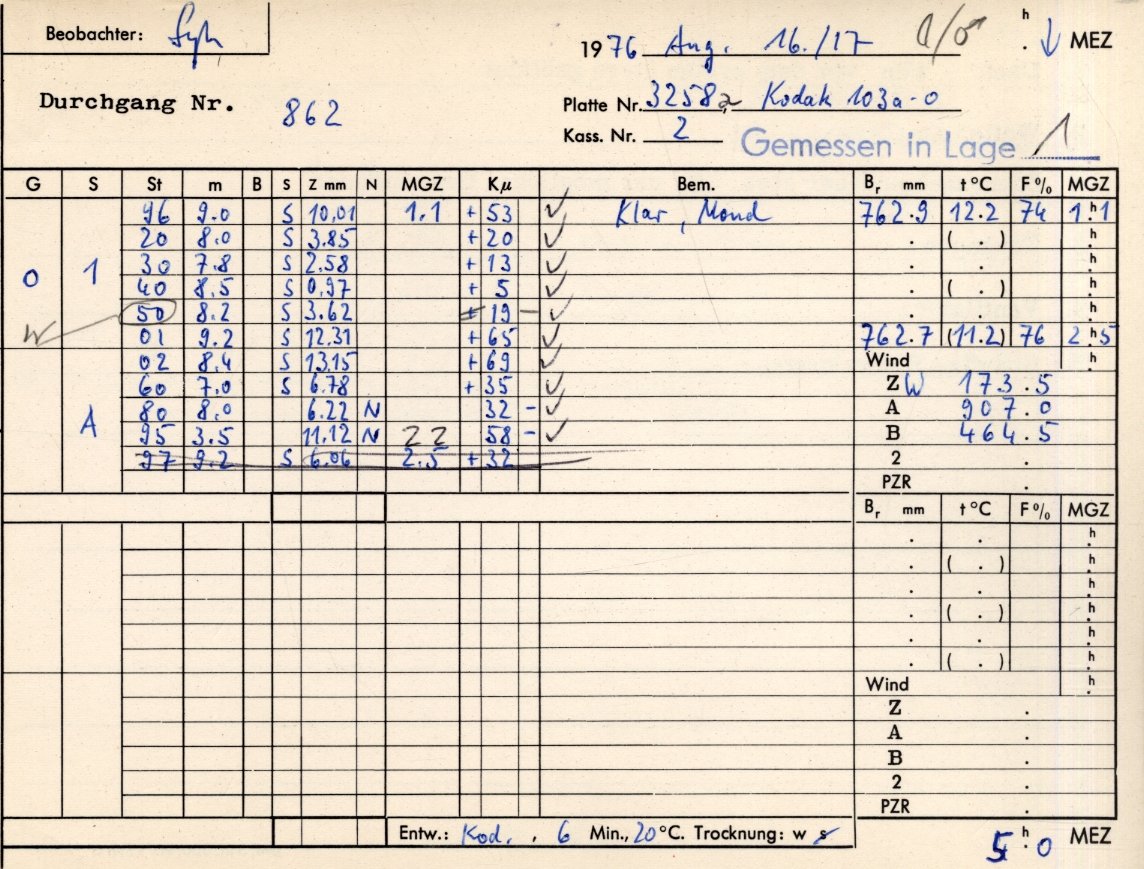 Beobachter:
1976 Aug. 16./17 h . ↓ MEZ
Durchgang Nr. 862
Platte Nr. 3258a, Kodak 103a-0
Kass. Nr. 2
Gemessen in Lage 1
G S St m B S Z mm N MGZ Kμ Bem. Br mm t°C F% MGZ
96 9.0 S 10.01 1.1 + 53 ✓ Klar, Mond 762.9 12.2 74 1.h1
20 8.0 S 3.85 + 20 ✓ . ( . ) .h
0 1 30 7.8 S 2.58 + 13 ✓ . . .h
40 8.5 S 0.97 + 5 ✓ . ( . ) .h
50 8.2 S 3.62 + 19 – ✓ . . .h
W 01 9.2 S 12.31 + 65 ✓ 762.7 (11.2) 76 2.h5
02 8.4 S 13.15 + 69 ✓ Wind .h
60 7.0 S 6.78 + 35 ✓ Z W 173.5
A 80 8.0 6.22 N 32 - ✓ A 907.0
95 3.5 11.12 N 22 58 - ✓ B 464.5
97 9.2 S 6.06 2.5 + 32 2 .
PZR .
Br mm t°C F% MGZ
. . .h
. ( . ) .h
. . .h
. ( . ) .h
. . .h
. ( . ) .h
Wind .h
Z .
A .
B .
2 .
PZR .
Entw.: Kod. , 6 Min., 20°C. Trocknung: w s
5.h0 MEZ